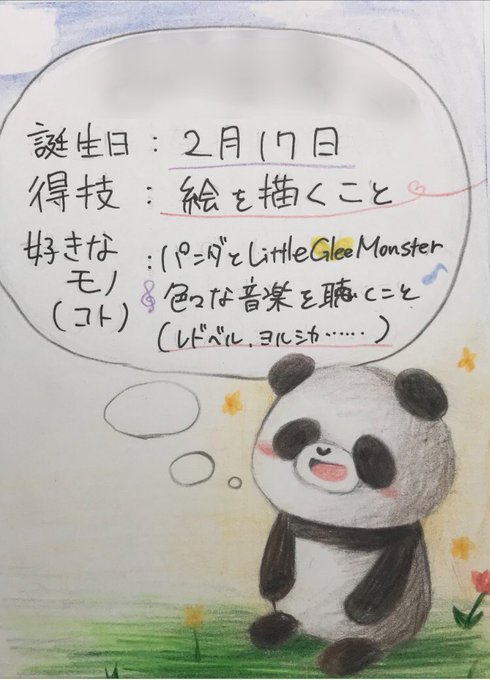 誕生日：2月17日
得技：絵を描くこと
好きな：パンダとLittle Glee Monster
モノ
（コト）色々な音楽を聴くこと
（レドベル，ヨルシカ……）